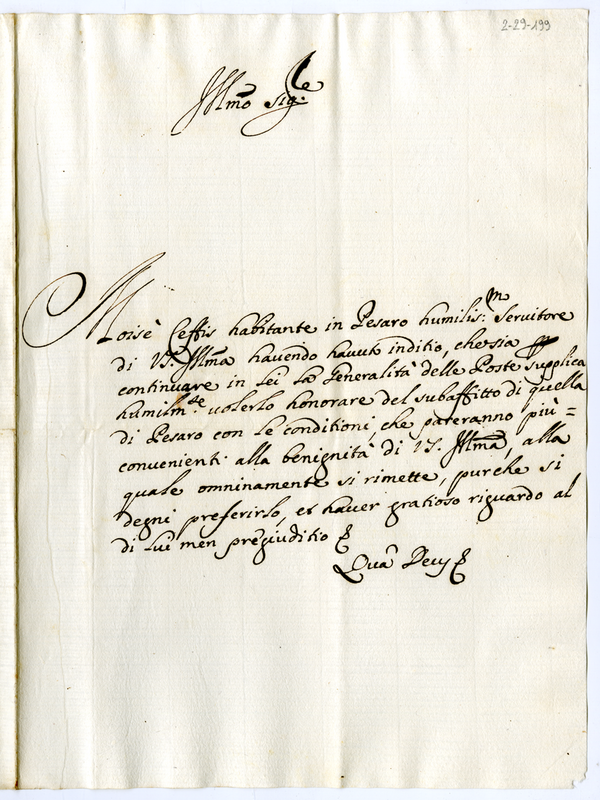 2-29-199
Illmo Sig:re
Moisè Ceffis habitante in Pesaro humilis:mo Servitore
di V.S. Illma havendo havuto inditio, che sia
continuare in lei la Generalità delle Poste supplica
humilm:te volerlo honorare del subaffitto di quella
di Pesaro con le conditioni, che pareranno più =
convenienti alla benignità di V.S. Illma, alla
quale omninamente si rimette, purche si
degni preferirlo, et haver gratioso riguardo al
di lui men pregiuditio
Qua Deus